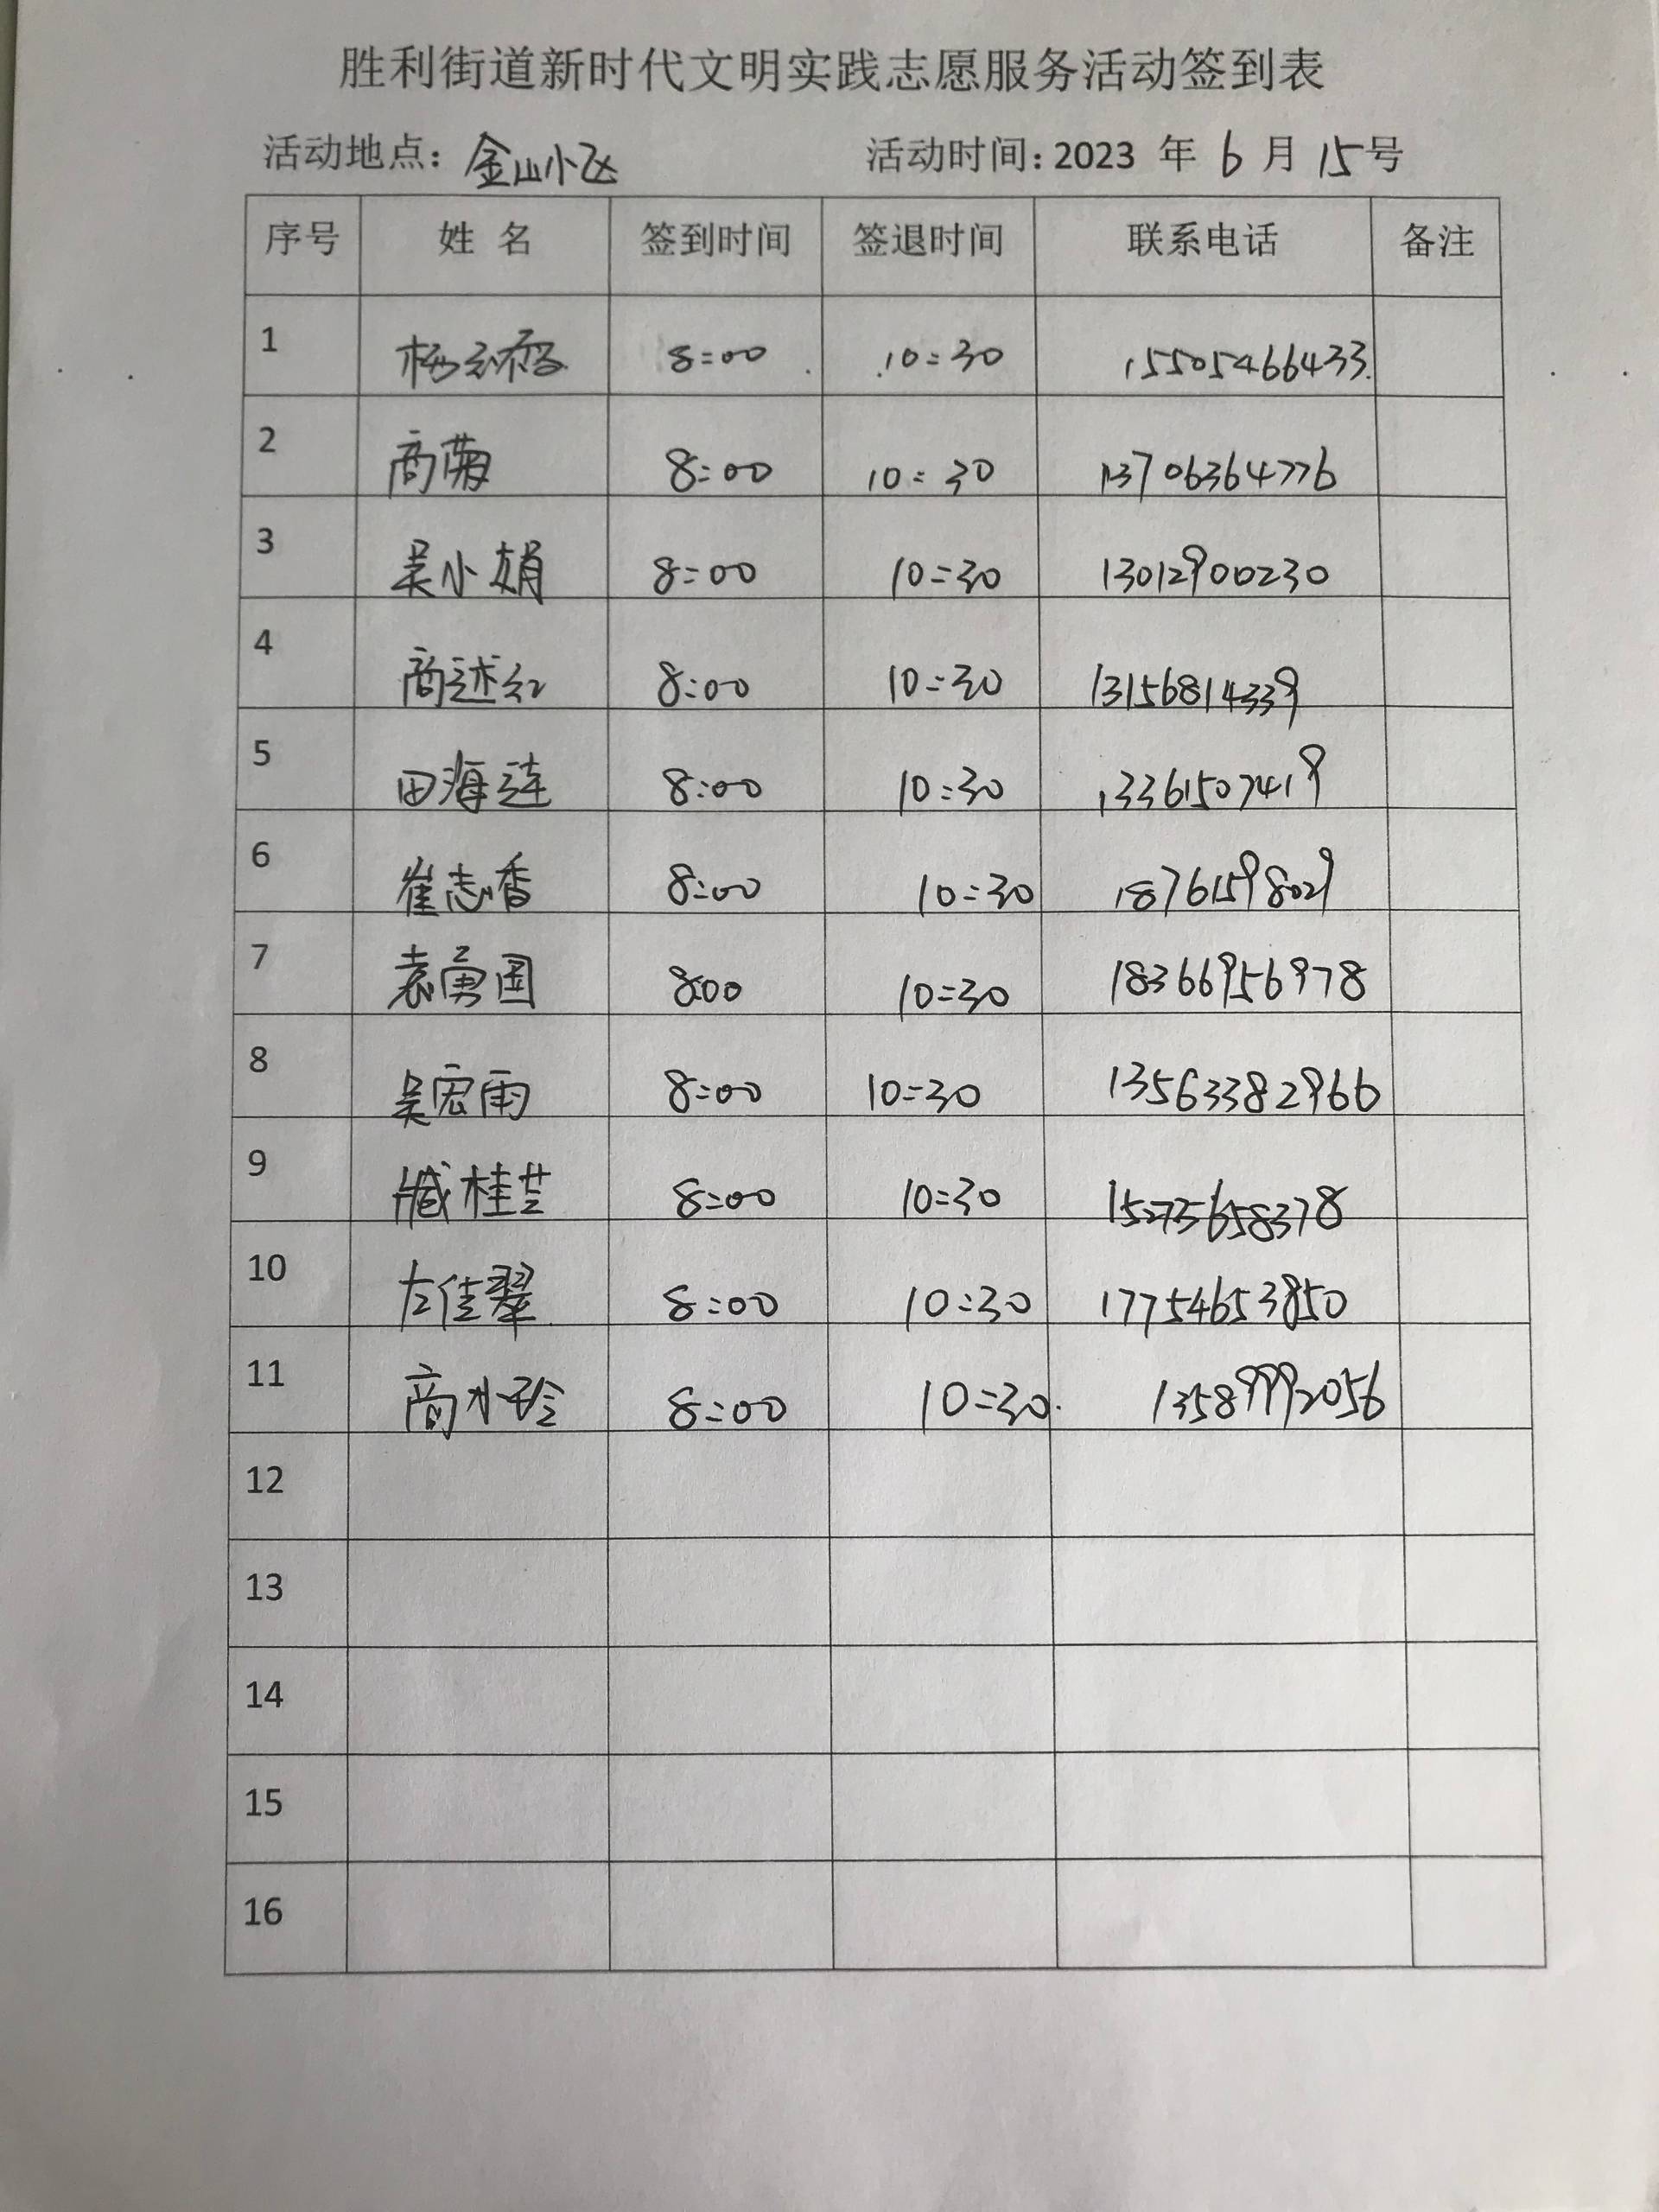 胜利街道新时代文明实践志愿服务活动签到表
活动地点：金山小区 活动时间：2023 年 6 月 15号
序号 姓 名 签到时间 签退时间 联系电话 备注
1 杨 8:00 10:30 15505466433
2 商菊 8:00 10:30 13706364776
3 吴小娟 8:00 10:30 13012900230
4 商述红 8:00 10:30 13156814339
5 田海莲 8:00 10:30 13361507419
6 崔志香 8:00 10:30 18761598029
7 袁勇国 8:00 10:30 18366956978
8 吴宏雨 8:00 10:30 13563382966
9 臧桂芸 8:00 10:30 15273658378
10 左佳翠 8:00 10:30 17754653850
11 商小玲 8:00 10:30 13589992056
12
13
14
15
16